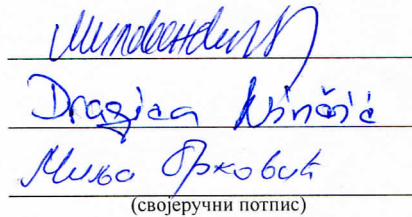 Dragica Ninčić
Миља Орковић
(својеручни потпис)